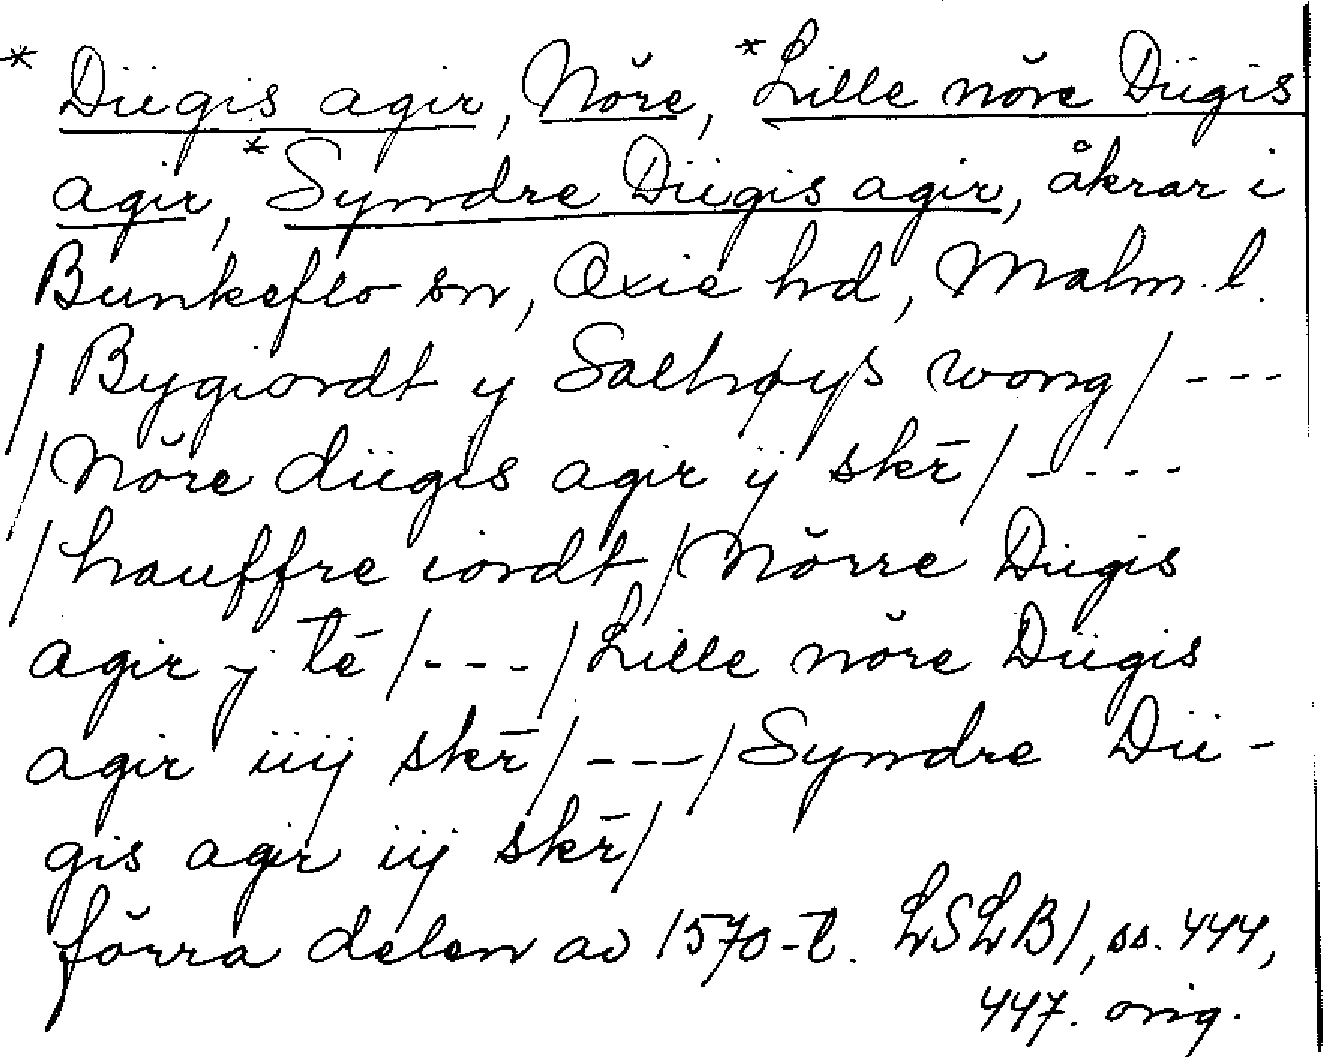 * Dügis agir, Nŏre, * Lille nŏre Dügis
agir, * Syndre Dügis agir, åkrar i
Bunkeflo sn, Oxie hd, Malm. l.
/ Bygiordt y Saltrøys wong / ---
/ Nŏre dügis agir ij skr̄ / ----
/ hauffre iordt / Nŏrre Dügis
agir j tē / --- / Lille nŏre Dügis
agir iiij skr̄ / --- / Syndre Dü-
gis agir iij skr̄ /
förra delen av 1570-t. LSLB 1, ss. 444,
447. orig.